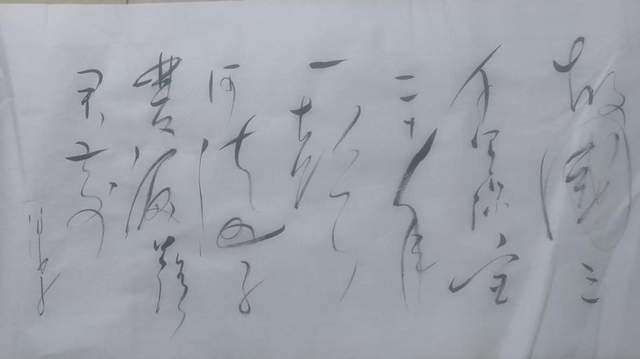 故國三
千里深宮
二十年
一聲
何滿子
雙淚落
君前